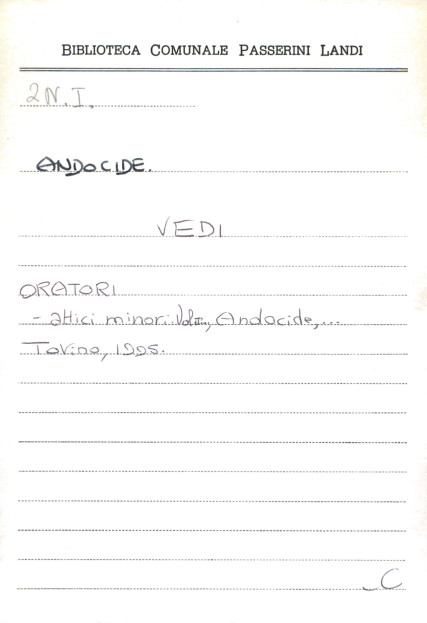 BIBLIOTECA COMUNALE PASSERINI LANDI
2N.I.
ANDOCIDE.
VEDI
ORATORI
- attici minori. Vol II, Andocide,...
Torino, 1995.
C